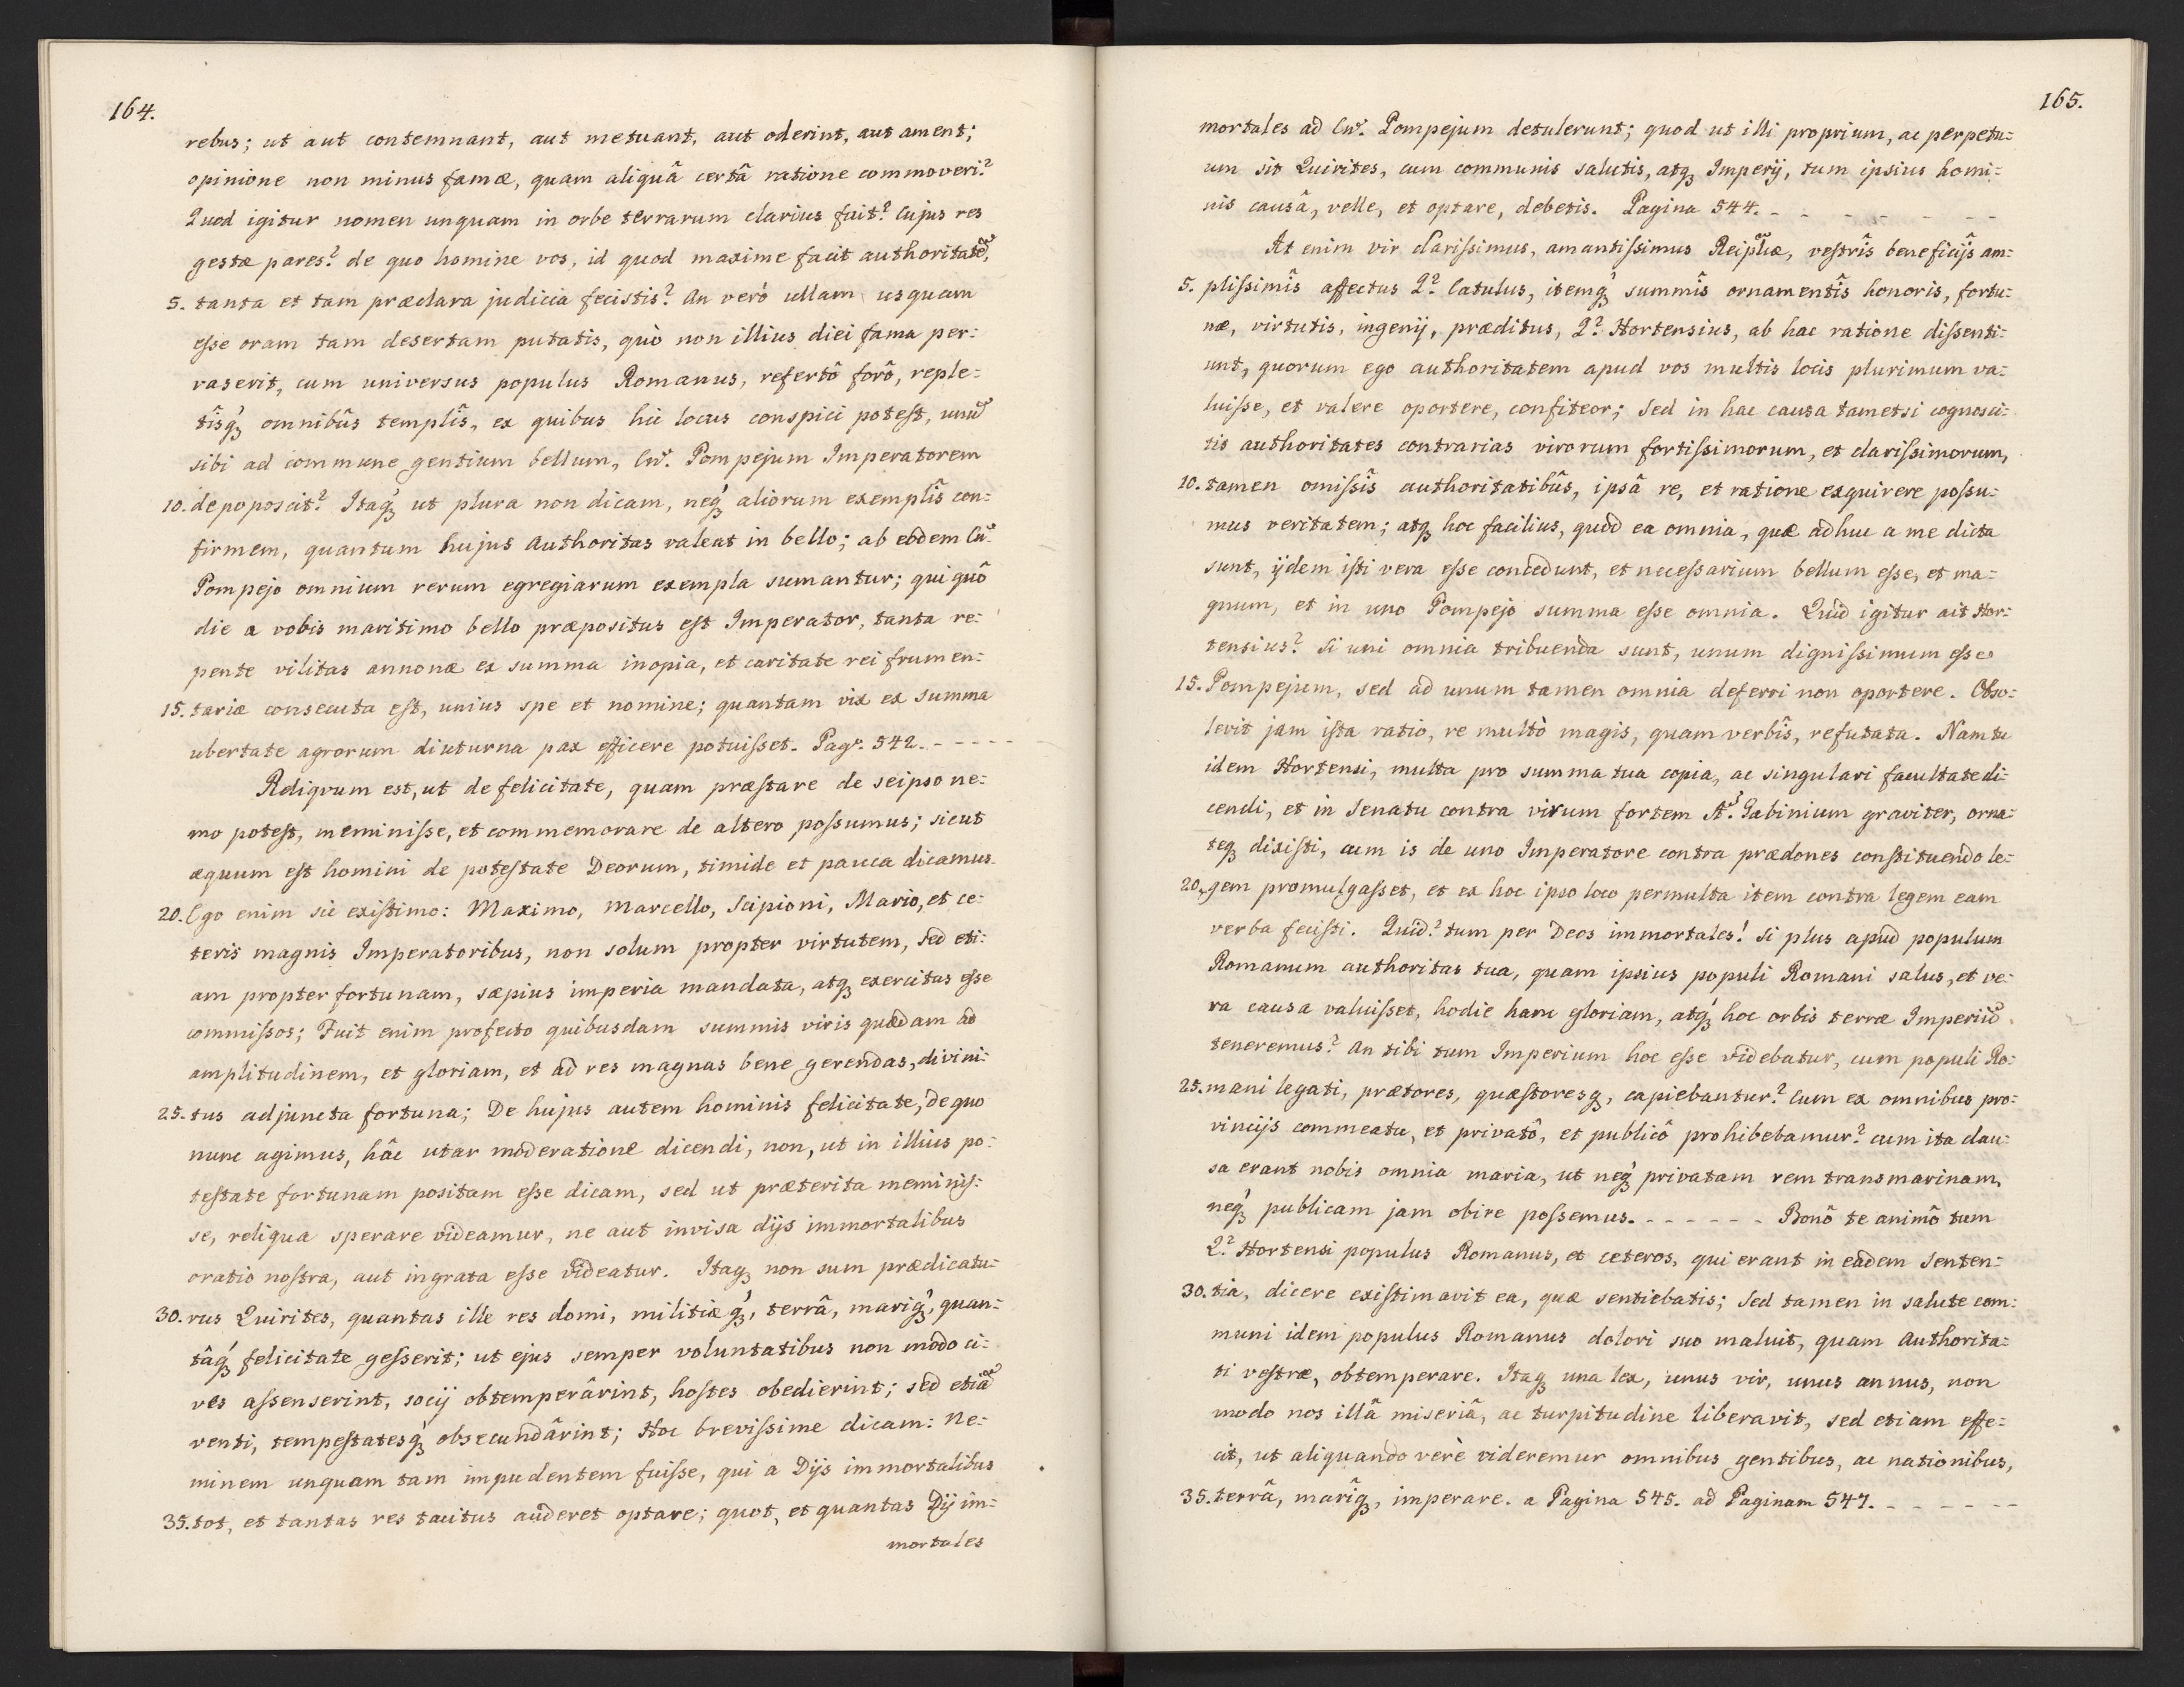 164.
rebus; ut aut contemnant, aut metuant, aut oderint, aut ament;
opinione non minus famæ, quam aliquâ certâ ratione commoveri?
Quod igitur nomen unquam in orbe terrarum clarius fuit? Cujus res
gestæ pares? de quo homine vos, id quod maxime facit authoritatẽ,
5. tanta et tam præclara judicia fecistis? An verò ullam usquam
eſse oram tam desertam putatis, quò non illius diei fama per=
vaserit, cum universus populus Romanus, refertô forô, reple=
tîsq́ꝫ omnibûs templîs, ex quibus hic locus conspici poteſt, unũ
sibi ad commune gentium bellum, Cn. Pompejum Imperatorem
10. depoposcit? Itaq́ꝫ ut plura non dicam, neq́ꝫ aliorum exemplîs con=
firmem, quantum hujus Authoritas valeat in bello; ab eodem Cn.
Pompejo omnium rerum egregiarum exempla sumantur; qui quô
die a vobis maritimo bello præpositus eſt Imperator, tanta re=
pente vilitas annonæ ex summa inopia, et caritate rei frumen=
15. tariæ consecuta eſt, unius spe et nomine; quantam vix ex summa
ubertate agrorum diuturna pax efficere potuiſset. Pag. 542. - - - - -
Reliqvum est, ut de felicitate, quam præſtare de seipso ne=
mo poteſt, meminiſse, et commemorare de altero poſsumus; sicut
æquum eſt homini de poteſtate Deorum, timide et pauca dicamus.
20. Ego enim sic exiſtimo: Maximo, Marcello, Scipioni, Mario, et ce=
teris magnis Imperatoribus, non solum propter virtutem, sed eti=
am propter fortunam, sæpius imperia mandata, atqꝫ exercitus eſse
commiſsos; Fuit enim profecto quibusdam summis viris quædam ad
amplitudinem, et gloriam, et ad res magnas bene gerendas, divini=
25. tus adjuncta fortuna; De hujus autem hominis felicitate, de quo
nunc agimus, hâc utar moderatione dicendi, non, ut in illius po=
teſtate fortunam positam eſse dicam, sed ut præterita meminiſ=
se, reliqua sperare videamur, ne aut invisa dijs immortalibus
oratio noſtra, aut ingrata eſse videatur. Itaqꝫ non sum prædicatu=
30. rus Quirites, quantas ille res domi, militiæq́ꝫ, terrâ, mariq́ꝫ, quan=
tâq́ꝫ felicitate geſserit; ut ejus semper voluntatibus non modo ci=
ves aſsenserint, socij obtemperârint, hoſtes obedierint; sed etiã
venti, tempeſtatesq́ꝫ obsecundârint; Hoc breviſsime dicam: Ne=
minem unquam tam impudentem fuiſse, qui a Dijs immortalibus
35. tot, et tantas res tacitus auderet optare; quot, et quantas Dij im=
mortales
165.
mortales ad Cn. Pompejum detulerunt; quod ut illi proprium, ac perpetu=
um sit Quirites, cum communis salutis, atqꝫ Imperij, tum ipsius homi=
nis causâ, velle, et optare, debetis. Pagina 544. - - - - - - -
At enim vir clariſsimus, amantiſsimus Reipliæ, veſtrîs beneficijs am=
5. pliſsimîs affectus Q. Catulus, itemq́ꝫ summîs ornamentîs honoris, fortu=
næ, virtutis, ingenij, præditus, Q. Hortensius, ab hac ratione diſsenti=
unt, quorum ego authoritatem apud vos multis locis plurimum va=
luiſse, et valere oportere, confiteor; Sed in hac causa tametsi cognosci=
tis authoritates contrarias virorum fortiſsimorum, et clariſsimorum,
10. tamen omiſsîs authoritatibûs, ipsâ re, et ratione exquirere poſsu=
mus veritatem; atqꝫ hoc facilius, quòd ea omnia, quæ adhuc a me dicta
sunt, ijdem iſti vera eſse concedunt, et neceſsarium bellum eſse, et ma=
gnum, et in uno Pompejo summa eſse omnia. Quid igitur ait Hor=
tensius? Si uni omnia tribuenda sunt, unum digniſsimum eſse
15. Pompejum, sed ad unum tamen omnia deferri non oportere. Obso=
levit jam iſta ratio, re multò magis, quam verbîs, refutata. Nam tu
idem Hortensi, multa pro summa tua copia, ac singulari facultate di=
cendi, et in Senatu contra virum fortem A. Gabinium graviter, orna=
teqꝫ dixiſti, cum is de uno Imperatore contra prædones conſtituendo le=
20. gem promulgaſset, et ex hoc ipso loco permulta item contra legem eam
verba feciſti. Quid? tum per Deos immortales! Si plus apud populum
Romanum authoritas tua, quam ipsius populi Romani salus, et ve=
ra causa valuiſset, hodie hanc gloriam, atq́ꝫ hoc orbis terræ Imperiũ
teneremus? An tibi tum Imperium hoc eſse videbatur, cum populi Ro=
25. mani legati, prætores, quæſtoresqꝫ, capiebantur? Cum ex omnibus pro=
vincijs commeatu, et privatô, et publicô prohibebamur? cum ita clau=
sa erant nobis omnia maria, ut neq́ꝫ privatam rem transmarinam,
neq́ꝫ publicam jam obire poſsemus. - - - - - - Bonô te animô tum
Q. Hortensi populus Romanus, et ceteros, qui erant in eâdem Senten=
30. tia, dicere exiſtimavit ea, quæ sentiebatis; Sed tamen in salute com=
muni idem populus Romanus dolori suo maluit, quam Authorita=
ti veſtræ, obtemperare. Itaqꝫ una lex, unus vir, unus annus, non
modo nos illâ miseriâ, ac turpitudine liberavit, sed etiam effe=
cit, ut aliquando verè videremur omnibus gentibus, ac nationibus,
35. terrâ, marîqꝫ, imperare. a Pagina 545. ad Paginam 547. - - - - - -